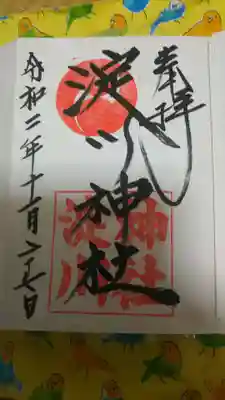 奉拝
淀川神社
淀川神社
令和二年十一月二十七日